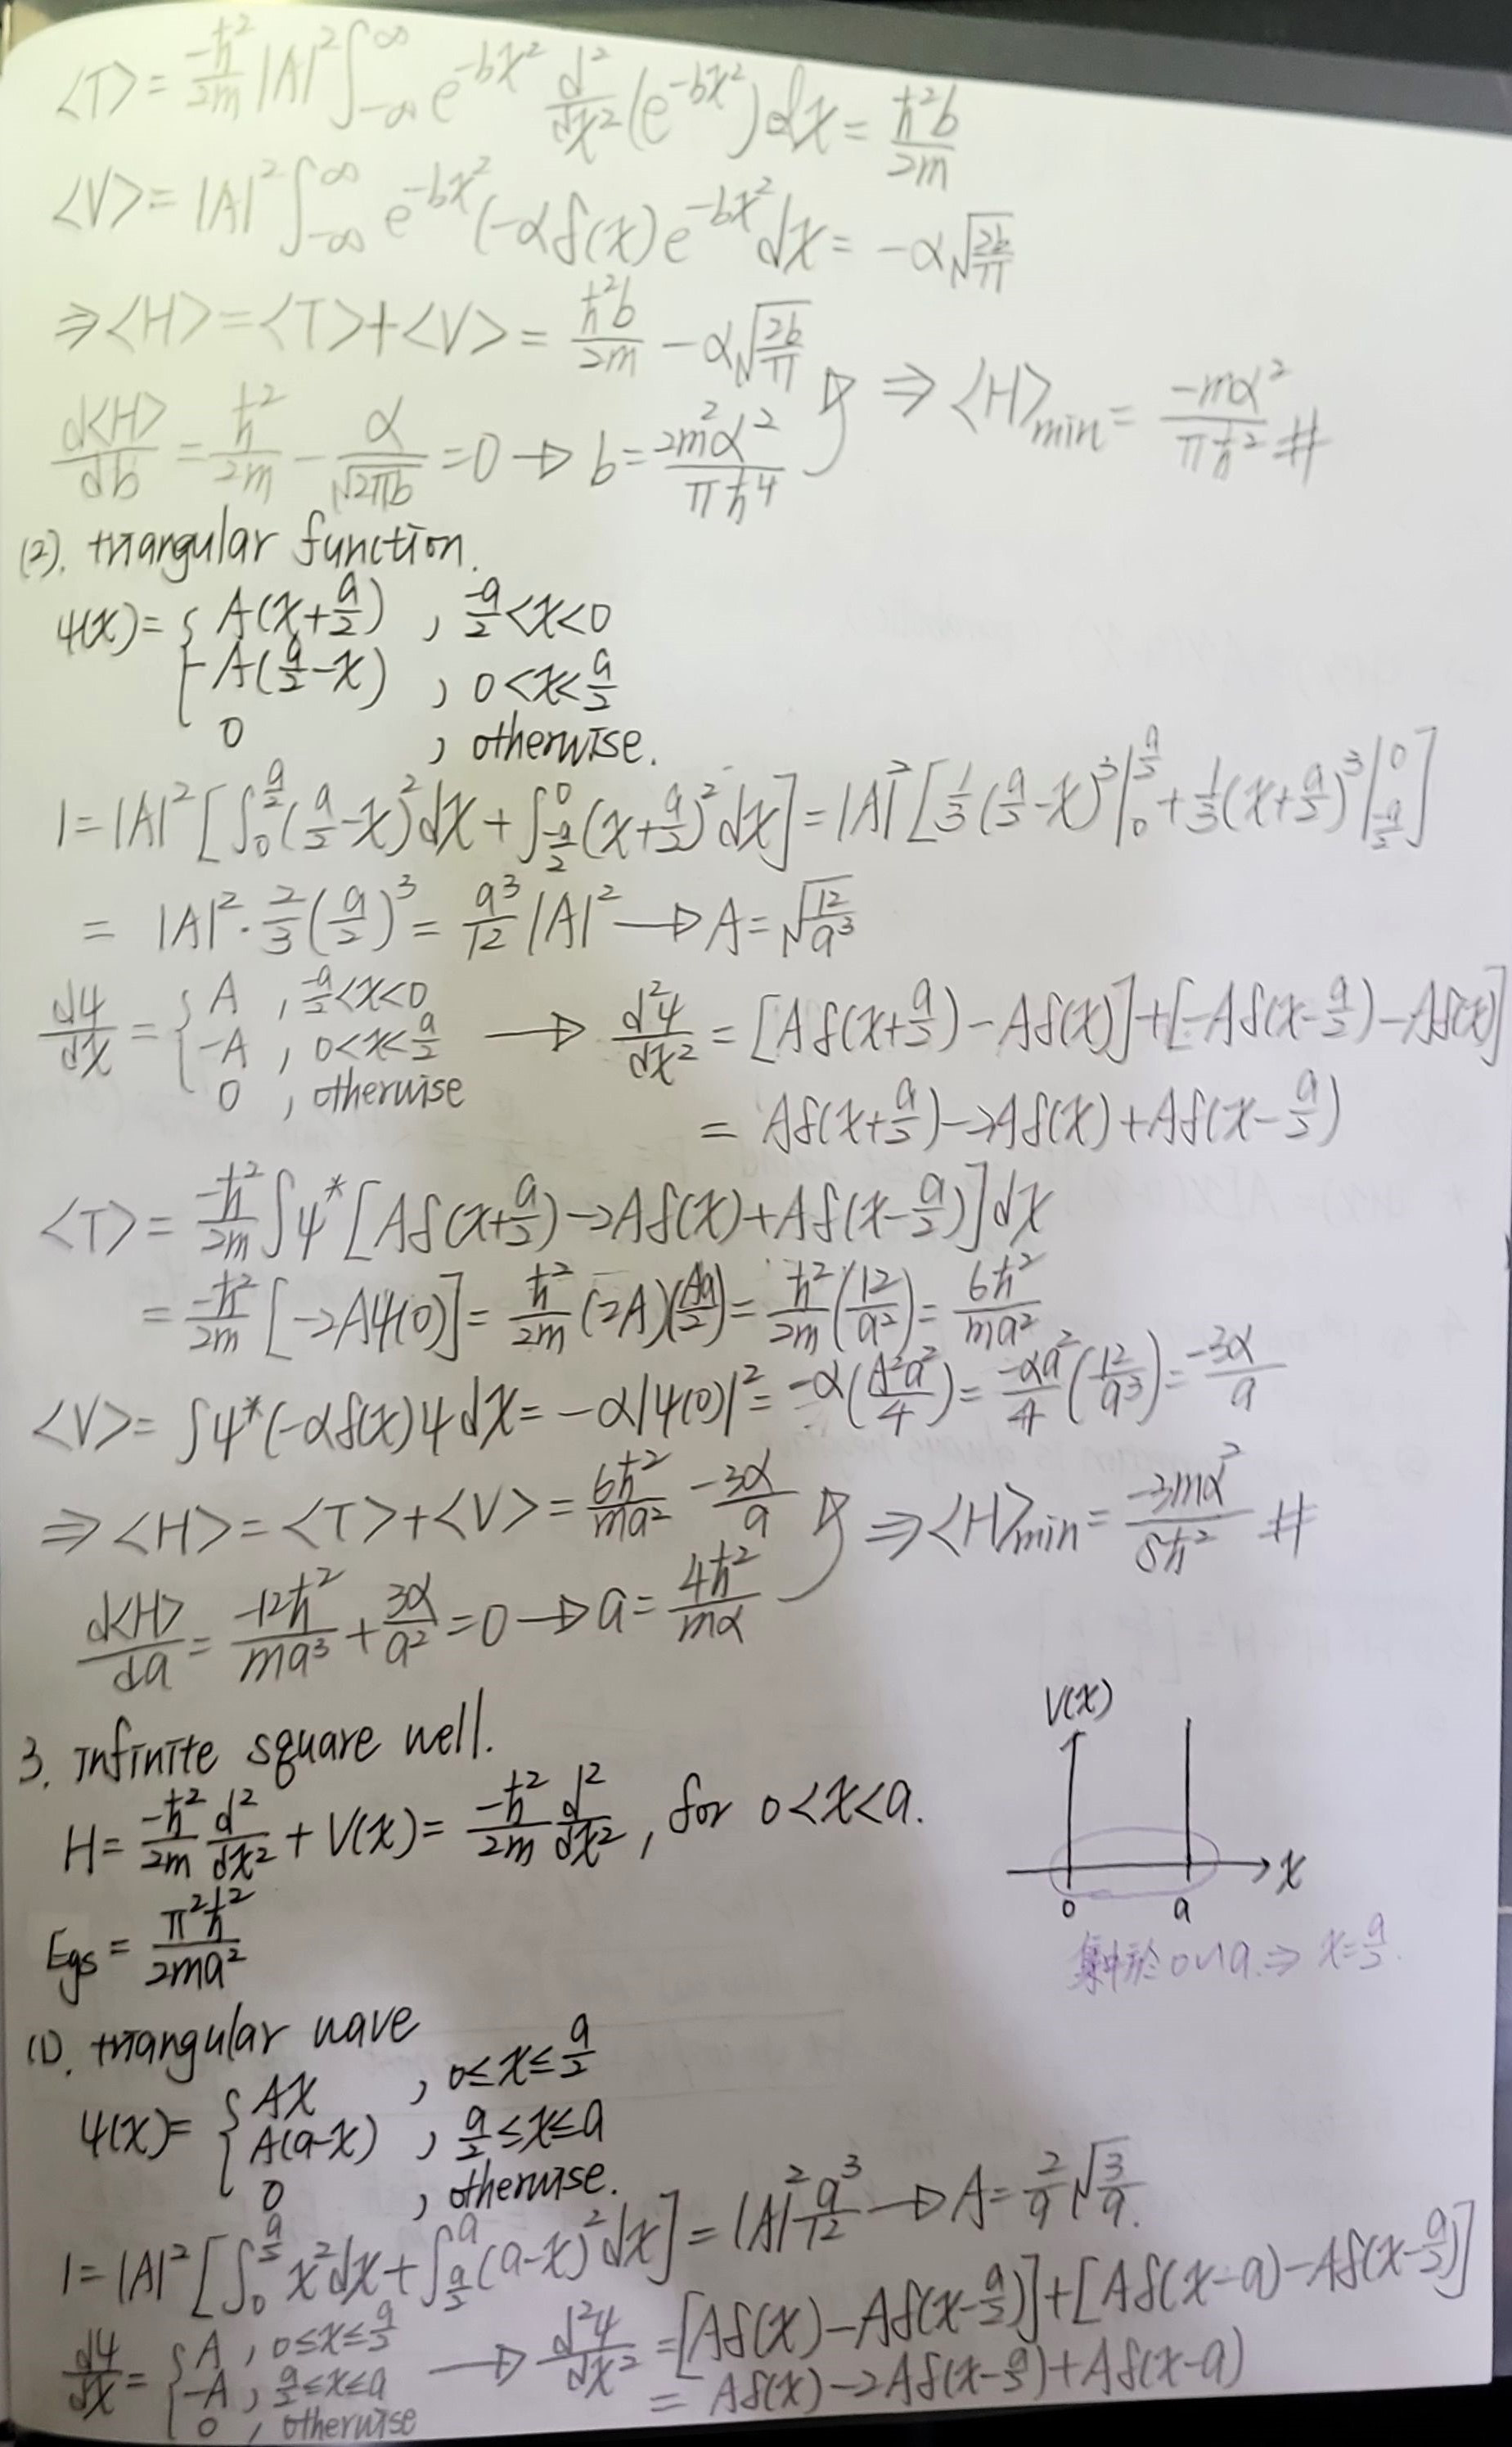 <T> = -ħ²/2m |A|² ∫_{-∞}^{∞} e^{-bx²} d²/dx² (e^{-bx²}) dx = ħ²b/2m
<V> = |A|² ∫_{-∞}^{∞} e^{-bx²} (-αδ(x) e^{-bx²} dx = -α√(2b/π)
⇒ <H> = <T> + <V> = ħ²b/2m - α√(2b/π)
d<H>/db = ħ²/2m - α/√(2πb) = 0 → b = 2m²α²/πħ⁴ ⇒ <H>min = -mα²/πħ² #
(2). triangular function.
ψ(x) = { A(x+a/2) , -a/2 < x < 0
-A(a/2-x) , 0 < x < a/2
0 , otherwise.
1 = |A|² [∫_0^{a/2} (a/2-x)² dx + ∫_{-a/2}^0 (x+a/2)² dx] = |A|² [1/3 (a/2-x)³|_0^{a/2} + 1/3 (x+a/2)³|_{-a/2}^0]
= |A|² · 2/3 (a/2)³ = a³/12 |A|² → A = √(12/a³)
dψ/dx = { A , -a/2 < x < 0
-A , 0 < x < a/2
0 , otherwise
→ d²ψ/dx² = [Aδ(x+a/2) - Aδ(x)] + [-Aδ(x-a/2) - Aδ(x)]
= Aδ(x+a/2) - 2Aδ(x) + Aδ(x-a/2)
<T> = -ħ²/2m ∫ψ* [Aδ(x+a/2) - 2Aδ(x) + Aδ(x-a/2)] dx
= -ħ²/2m [-2Aψ(0)] = ħ²/2m (2A)(Aa/2) = ħ²/2m (12/a²) = 6ħ²/ma²
<V> = ∫ψ*(-αδ(x))ψ dx = -α|ψ(0)|² = -α(A²a²/4) = -αa²/4 (12/a³) = -3α/a
⇒ <H> = <T> + <V> = 6ħ²/ma² - 3α/a
d<H>/da = -12ħ²/ma³ + 3α/a² = 0 → a = 4ħ²/mα ⇒ <H>min = -3mα²/8ħ² #
3. infinite square well.
H = -ħ²/2m d²/dx² + V(x) = -ħ²/2m d²/dx² , for 0 < x < a.
Egs = π²ħ²/2ma²
V(x)
x
0 a
集中於 0~a. ⇒ x = a/2.
(1). triangular wave
ψ(x) = { Ax , 0 ≤ x ≤ a/2
A(a-x) , a/2 ≤ x ≤ a
0 , otherwise.
1 = |A|² [∫_0^{a/2} x² dx + ∫_{a/2}^a (a-x)² dx] = |A|² a³/12 → A = 2/a √(3/a).
dψ/dx = { A , 0 ≤ x ≤ a/2
-A , a/2 ≤ x ≤ a
0 , otherwise
→ d²ψ/dx² = [Aδ(x) - Aδ(x-a/2)] + [Aδ(x-a) - Aδ(x-a/2)]
= Aδ(x) - 2Aδ(x-a/2) + Aδ(x-a)